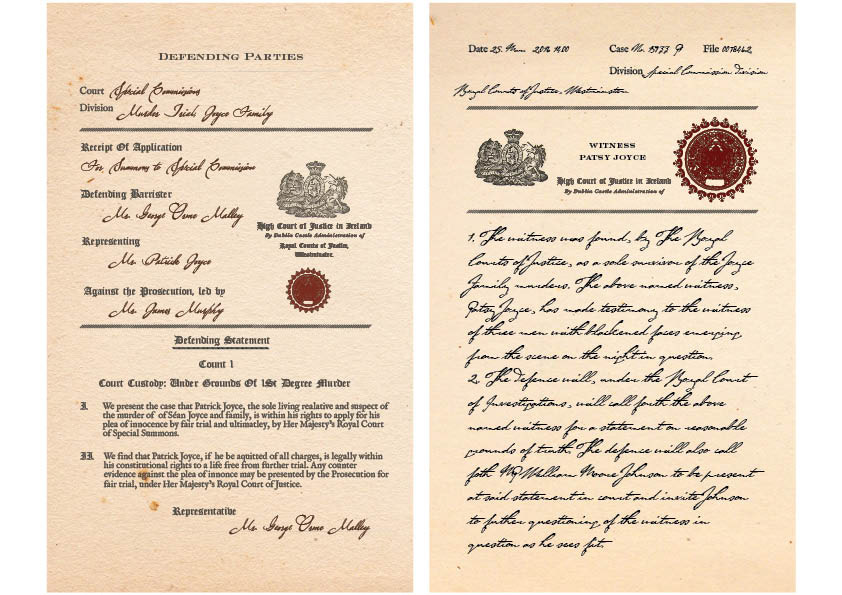 DEFENDING PARTIES
Court Special Commissions
Division Murder Trial: Joyce Family
Receipt Of Application
For Summons to Special Commission
Defending Barrister
Mr. George Orme Malley
Representing
Mr. Patrick Joyce
Against the Prosecution, led by
Mr. James Murphy
High Court of Justice in Ireland
By Dublin Castle Administration of
Royal Courts of Justice,
Westminster.
Defending Statement
Count 1
Court Custody: Under Grounds Of 1St Degree Murder
I. We present the case that Patrick Joyce, the sole living realative and suspect of
the murder of of Séan Joyce and family, is within his rights to apply for his
plea of innocence by fair trial and ultimatley, by Her Majesty's Royal Court
of Special Summons.
II. We find that Patrick Joyce, if he be aquitted of all charges, is legally within
his constitutional rights to a life free from further trial. Any counter
evidence against the plea of innonce may be presented by the Prosecution for
fair trial, under Her Majesty's Royal Court of Justice.
Representative
Mr. George Orme Malley
Date 25. Case No. File
Division Special Commission Division
Royal Courts of Justice, Westminster
WITNESS
PATSY JOYCE
High Court of Justice in Ireland
By Dublin Castle Administration of
1. The witness was found, by The Royal
Courts of Justice, as a sole survivor of the Joyce
Family murders. The above named witness,
Patsy Joyce, has made testimony to the witness
of three men with blackened faces emerging
from the scene on the night in question.
2. The defence will, under the Royal Court
of Investigations, will call forth the above
named witness for a statement on reasonable
grounds of truth. The defence will also call
foth Mr William Moore Johnson to be present
at said statement in court and invite Johnson
to futher questioning of the witness in
question as he sees fit.